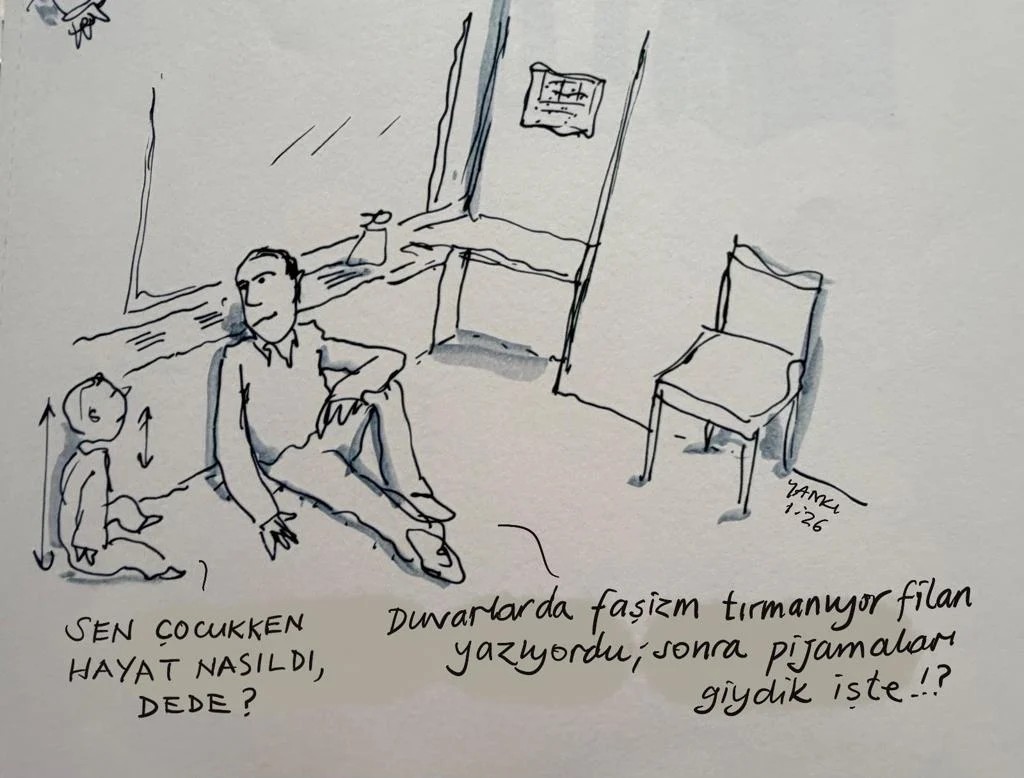 SEN ÇOCUKKEN
HAYAT NASILDI,
DEDE?
Duvarlarda faşizm tırmanıyor filan
yazıyordu; sonra pijamaları
giydik işte!!?
YANKI
1.26